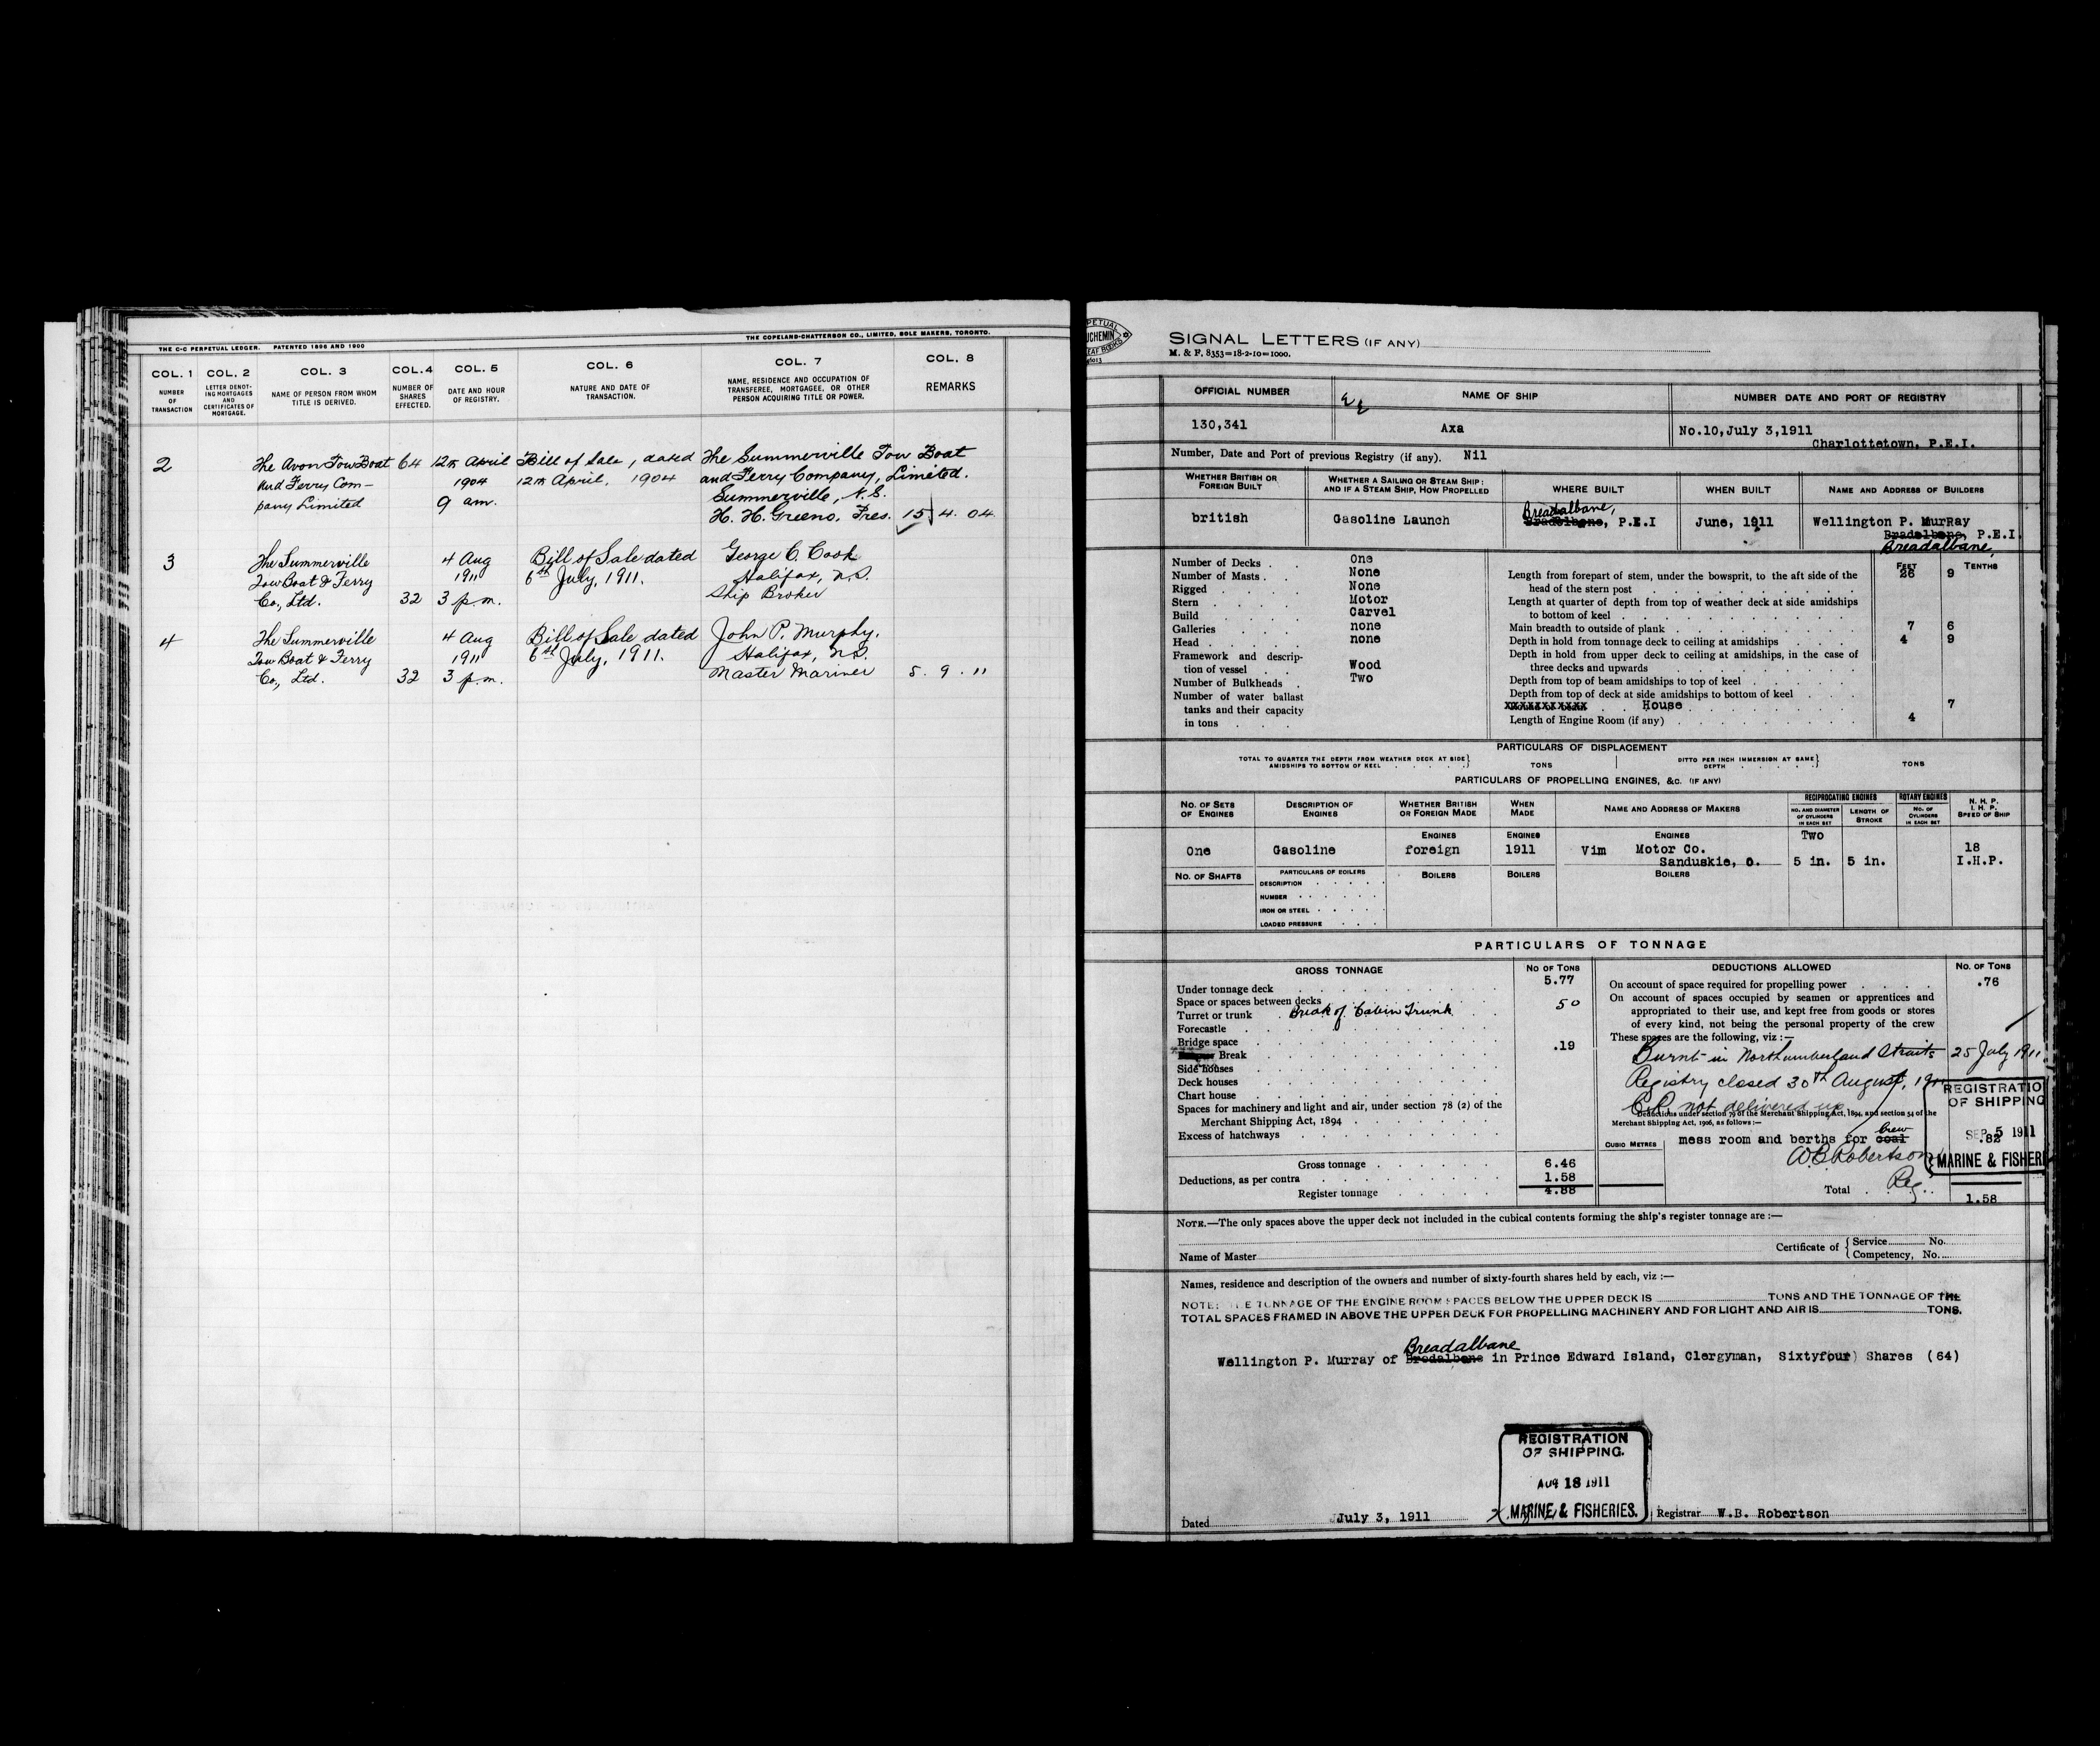 THE C-C PERPETUAL LEDGER. PATENTED 1896 AND 1900
THE COPELAND-CHATTERSON CO., LIMITED, SOLE MAKERS, TORONTO.
COL. 1 COL. 2 COL. 3 COL. 4 COL. 5 COL. 6 COL. 7 COL. 8
NUMBER OF TRANSACTION
LETTER DENOTING MORTGAGES AND CERTIFICATES OF MORTGAGE.
NAME OF PERSON FROM WHOM TITLE IS DERIVED.
NUMBER OF SHARES EFFECTED.
DATE AND HOUR OF REGISTRY.
NATURE AND DATE OF TRANSACTION.
NAME, RESIDENCE AND OCCUPATION OF TRANSFEREE, MORTGAGEE, OR OTHER PERSON ACQUIRING TITLE OR POWER.
REMARKS
2 The Avon Tow Boat 64 12th April Bill of Sale, dated The Summerville Tow Boat
and Ferry Com- 1904 12th April, 1904 and Ferry Company, Limited.
pany Limited 9 am. Summerville, N.S.
H. H. Greeno, Pres. 15 4. 04
3 The Summerville 4 Aug Bill of Sale dated George C Cook
Tow Boat & Ferry 1911 6th July, 1911. Halifax, N.S.
Co., Ltd. 32 3 p.m. Ship Broker
4 The Summerville 4 Aug Bill of Sale dated John P. Murphy,
Tow Boat & Ferry 1911 6th July, 1911. Halifax, N.S.
Co., Ltd. 32 3 p.m. Master Mariner 5. 9. 11
SIGNAL LETTERS (IF ANY)
M. & F. 8353=18-2-10=1000.
OFFICIAL NUMBER NAME OF SHIP NUMBER DATE AND PORT OF REGISTRY
130,341 Axa No.10,July 3,1911
Charlottetown, P.E.I.
Number, Date and Port of previous Registry (if any). Nil
WHETHER BRITISH OR FOREIGN BUILT
WHETHER A SAILING OR STEAM SHIP: AND IF A STEAM SHIP, HOW PROPELLED
WHERE BUILT WHEN BUILT NAME AND ADDRESS OF BUILDERS
Breadalbane,
british Gasoline Launch Bradelbane, P.E.I June, 1911 Wellington P. MurRay
Bradelbane, P.E.I.
Breadalbane,
FEET TENTHS
Number of Decks . . One
Number of Masts . . None
Rigged None
Stern Motor
Build Carvel
Galleries none
Head none
Framework and description of vessel Wood
Number of Bulkheads . Two
Number of water ballast tanks and their capacity in tons
Length from forepart of stem, under the bowsprit, to the aft side of the
head of the stern post 26 9
Length at quarter of depth from top of weather deck at side amidships
to bottom of keel
Main breadth to outside of plank 7 6
Depth in hold from tonnage deck to ceiling at amidships 4 9
Depth in hold from upper deck to ceiling at amidships, in the case of
three decks and upwards
Depth from top of beam amidships to top of keel
Depth from top of deck at side amidships to bottom of keel
House 7
Length of Engine Room (if any) 4
PARTICULARS OF DISPLACEMENT
TOTAL TO QUARTER THE DEPTH FROM WEATHER DECK AT SIDE AMIDSHIPS TO BOTTOM OF KEEL TONS DITTO PER INCH IMMERSION AT SAME DEPTH TONS
PARTICULARS OF PROPELLING ENGINES, &C. (IF ANY)
NO. OF SETS OF ENGINES
DESCRIPTION OF ENGINES
WHETHER BRITISH OR FOREIGN MADE
WHEN MADE
NAME AND ADDRESS OF MAKERS
RECIPROCATING ENGINES
NO. AND DIAMETER OF CYLINDERS IN EACH SET
LENGTH OF STROKE
ROTARY ENGINES
NO. OF CYLINDERS IN EACH SET
N. H. P.
I. H. P.
SPEED OF SHIP
ENGINES ENGINES ENGINES Two
One Gasoline foreign 1911 Vim Motor Co. 18
Sanduskie, O. 5 in. 5 in. I.H.P.
NO. OF SHAFTS PARTICULARS OF BOILERS BOILERS BOILERS BOILERS
DESCRIPTION
NUMBER
IRON OR STEEL
LOADED PRESSURE
PARTICULARS OF TONNAGE
GROSS TONNAGE NO OF TONS DEDUCTIONS ALLOWED NO. OF TONS
Under tonnage deck 5.77
Space or spaces between decks
Turret or trunk Break of Cabin Trunk 50
Forecastle
Bridge space
Break .19
Side houses
Deck houses
Chart house
Spaces for machinery and light and air, under section 78 (2) of the
Merchant Shipping Act, 1894
Excess of hatchways
Gross tonnage 6.46
Deductions, as per contra 1.58
Register tonnage 4.88
On account of space required for propelling power .76
On account of spaces occupied by seamen or apprentices and
appropriated to their use, and kept free from goods or stores
of every kind, not being the personal property of the crew
These spaces are the following, viz :—
Burnt in Northumberland Straits 25 July 1911
Registry closed 30th August, 1911
C.R. not delivered up
Deductions under section 79 of the Merchant Shipping Act, 1894, and section 54 of the
Merchant Shipping Act, 1906, as follows :—
REGISTRATIO
OF SHIPPING
SEP 5 1911
MARINE & FISHERI
CUBIC METRES
mess room and berths for coal crew .82
W B Robertson
Reg.
Total 1.58
NOTE.—The only spaces above the upper deck not included in the cubical contents forming the ship's register tonnage are :—
Name of Master
Certificate of { Service No.
Competency, No.
Names, residence and description of the owners and number of sixty-fourth shares held by each, viz :—
NOTE: THE TONNAGE OF THE ENGINE ROOM SPACES BELOW THE UPPER DECK IS TONS AND THE TONNAGE OF THE
TOTAL SPACES FRAMED IN ABOVE THE UPPER DECK FOR PROPELLING MACHINERY AND FOR LIGHT AND AIR IS TONS.
Breadalbane
Wellington P. Murray of Bredalbane in Prince Edward Island, Clergyman, Sixtyfour) Shares (64)
REGISTRATION
OF SHIPPING.
AUG 18 1911
MARINE & FISHERIES.
Dated July 3, 1911 Registrar W.B. Robertson